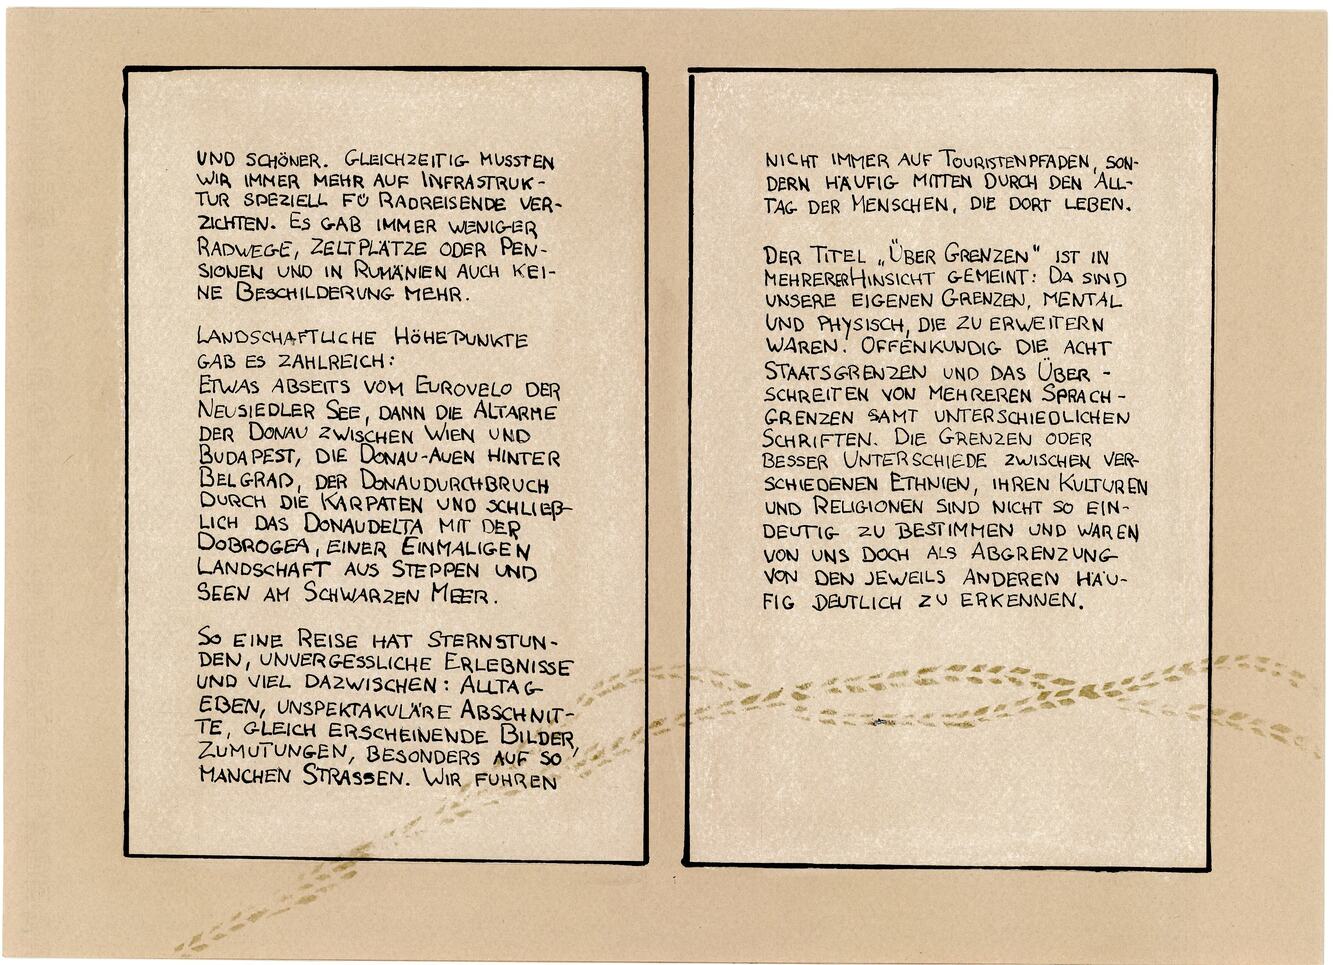 UND SCHÖNER. GLEICHZEITIG MUSSTEN
WIR IMMER MEHR AUF INFRASTRUK-
TUR SPEZIELL FÜ RADREISENDE VER-
ZICHTEN. ES GAB IMMER WENIGER
RADWEGE, ZELTPLÄTZE ODER PEN-
SIONEN UND IN RUMÄNIEN AUCH KEI-
NE BESCHILDERUNG MEHR.
LANDSCHAFTLICHE HÖHEPUNKTE
GAB ES ZAHLREICH:
ETWAS ABSEITS VOM EUROVELO DER
NEUSIEDLER SEE, DANN DIE ALTARME
DER DONAU ZWISCHEN WIEN UND
BUDAPEST, DIE DONAU-AUEN HINTER
BELGRAD, DER DONAUDURCHBRUCH
DURCH DIE KARPATEN UND SCHLIEß-
LICH DAS DONAUDELTA MIT DER
DOBROGEA, EINER EINMALIGEN
LANDSCHAFT AUS STEPPEN UND
SEEN AM SCHWARZEN MEER.
SO EINE REISE HAT STERNSTUN-
DEN, UNVERGESSLICHE ERLEBNISSE
UND VIEL DAZWISCHEN: ALLTAG
EBEN, UNSPEKTAKULÄRE ABSCHNIT-
TE, GLEICH ERSCHEINENDE BILDER,
ZUMUTUNGEN, BESONDERS AUF SO
MANCHEN STRASSEN. WIR FUHREN
NICHT IMMER AUF TOURISTENPFADEN, SON-
DERN HÄUFIG MITTEN DURCH DEN ALL-
TAG DER MENSCHEN, DIE DORT LEBEN.
DER TITEL „ÜBER GRENZEN" IST IN
MEHRERERHINSICHT GEMEINT: DA SIND
UNSERE EIGENEN GRENZEN, MENTAL
UND PHYSISCH, DIE ZU ERWEITERN
WAREN. OFFENKUNDIG DIE ACHT
STAATSGRENZEN UND DAS ÜBER-
SCHREITEN VON MEHREREN SPRACH-
GRENZEN SAMT UNTERSCHIEDLICHEN
SCHRIFTEN. DIE GRENZEN ODER
BESSER UNTERSCHIEDE ZWISCHEN VER-
SCHIEDENEN ETHNIEN, IHREN KULTUREN
UND RELIGIONEN SIND NICHT SO EIN-
DEUTIG ZU BESTIMMEN UND WAREN
VON UNS DOCH ALS ABGRENZUNG
VON DEN JEWEILS ANDEREN HÄU-
FIG DEUTLICH ZU ERKENNEN.